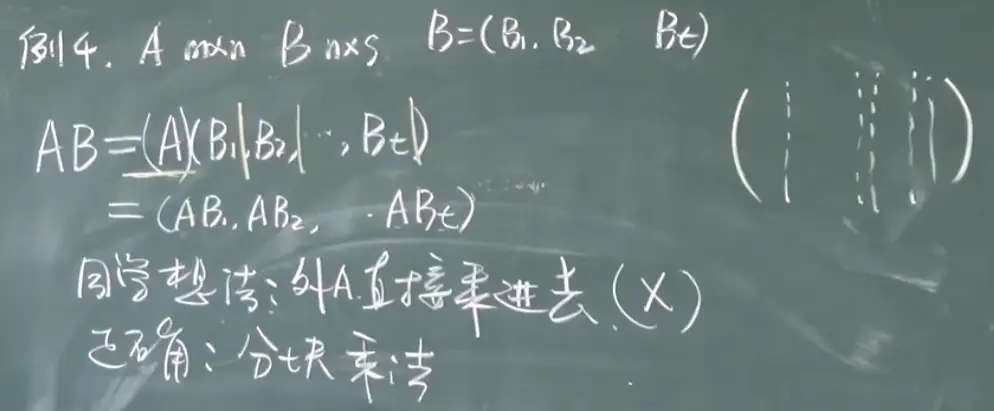 例4. A m×n B n×s B=(B₁, B₂ Bt)
AB=(A)(B₁,B₂, …, Bt)
=(AB₁, AB₂, . ABt)
同学想法:外A直接乘进去.(×)
正确:分块乘法